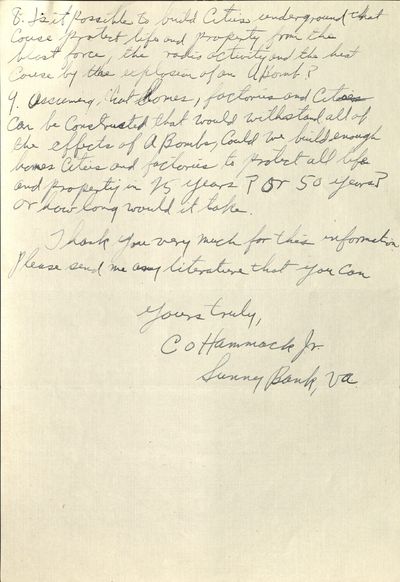 8. Is it Possible to build Cities underground that
Couse protect life and property from the
blast force, the radio activity and the heat
Couse by the explosion of an A Bomb?
9. Assuming that homes, factories and Cities
Can be Constructed that would withstand all of
the effects of A Bombs, Could we build enough
homes Cities and factories to protect all life
and property in 25 years? or 50 years?
or how long would it take.
Thank you very much for this information
Please send me any literature that you can
Yours truly,
C O Hammock Jr.
Sunny Bank, Va.